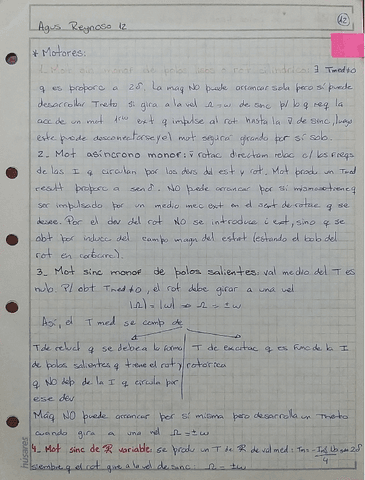 Agus Reynoso 12
12
* Motores:
∃ Tmed≠0
q es proporc a 2δ. La maq NO puede arrancar sola pero si puede
desarrollar Tneto si gira a la vel Ω=ω de sinc p/ lo q req la
acc de un mot 1rio ext q impulse al rot hasta la v̄ de sinc, luego
este puede desconectarse y el mot seguirá girando por sí solo.
2_ Mot asincrono monof: v̄ rotac directam relac c/ las freqs
de las I q circulan por los devs del est y rot. Mot produc un Tmed
result proporc a senδ. NO puede arrancar por si mismo
ser impulsado por un medio mec ext en el sent de rotac q se
desee. Por el dev del rot NO se introduce i ext, sino q se
obt por induc del campo magn del estat (estando el bob del
rot en cortocirc).
3_ Mot sinc monof de polos salientes: val medio del T es
nulo. P/ obt Tmed≠0, el rot debe girar a una vel
|Ω|=|ω| => Ω=±ω
Así, el T med se comp de
T de reluct q se debe a la forma T de excitac q es func de la I
de polos salientes q tiene el rot y rotórica
q NO dep de la I q circula por
ese dev
Máq NO puede arrancar por sí misma pero desarrolla un Tneto
cuando gira a una vel Ω=±ω
4_ Mot sinc de R variable: se produ un T de R de val med:
siembre q el rot gire a la vel de sinc: Ω=±ω
husares